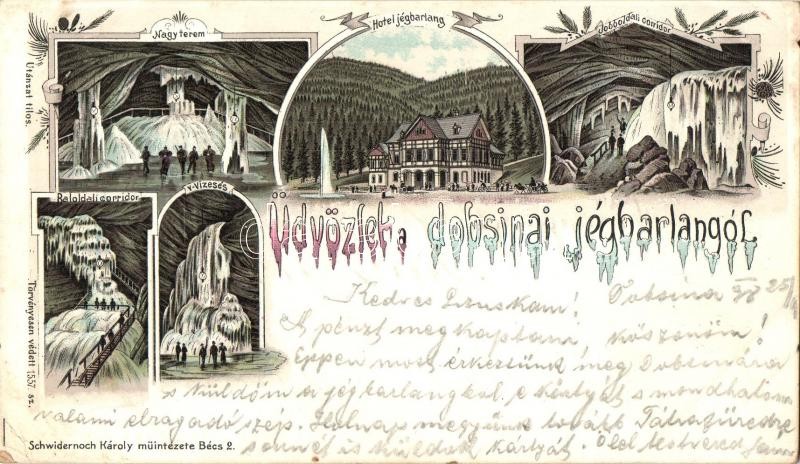 Nagyterem
Hotel jégbarlang
Jobboldali corridor
Utánzat tilos.
Baloldali corridor
Vizesés
Üdvözlet a dobsinai jégbarlangól
Törvényesen védett 1557. sz.
Kedves Dobsina 25
A pénzt megkaptam köszönöm!
Éppen most érkeztünk meg Dobsinára
s küldöm a jégbarlangból e kártyát s mondhatom
valami elragadó szép. Holnap megyünk tovább Tátrafüredre
sennét is küldök kártyát. Ölel testvered
Schwidernoch Károly müintézete Bécs 2.